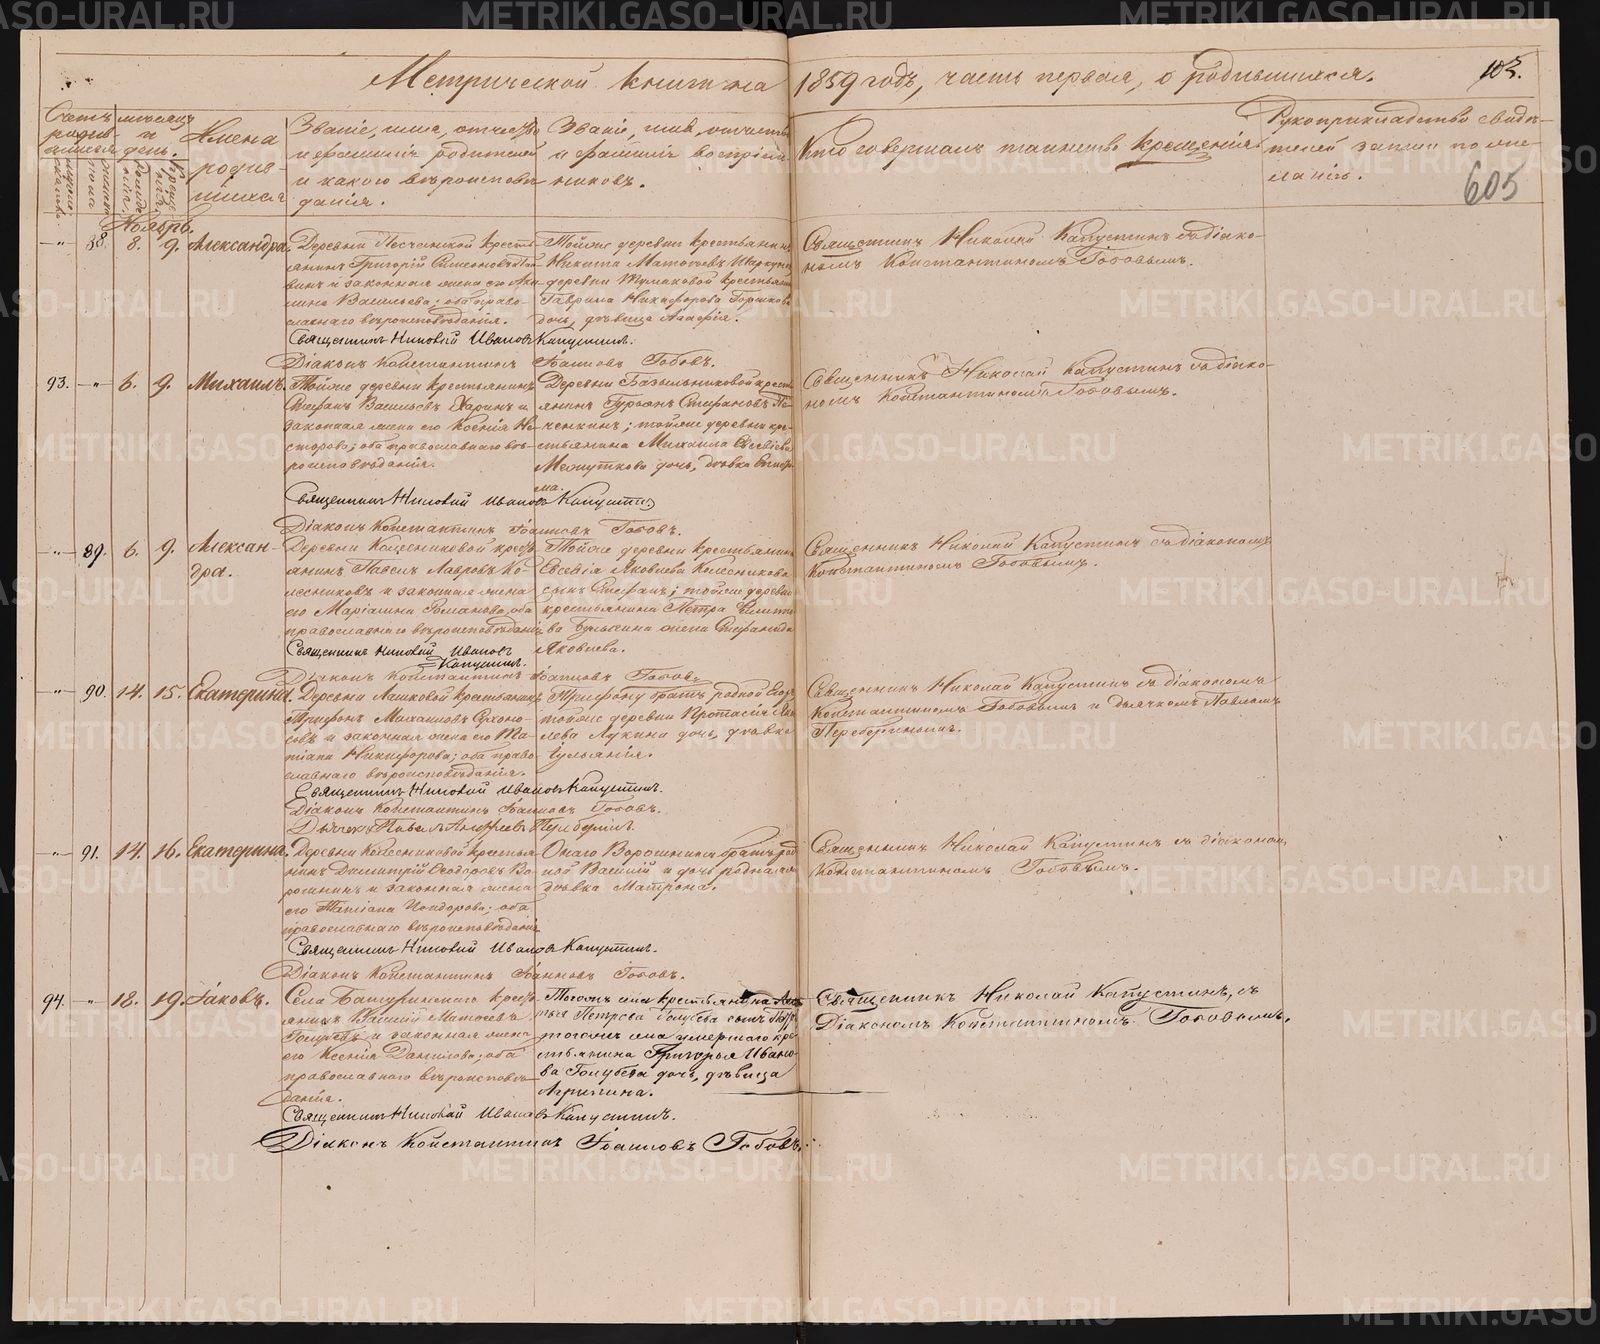 Метрической книги на 1859 годъ, часть первая, о родившихся.
103.
605
Счетъ родившихся
мѣсяцъ и день.
Имена родившихся
Званіе, имя, отчество
и фамилія родителей
и какого вѣроисповѣданія.
Званіе, имя, отчество
и фамилія воспріемниковъ.
Кто совершалъ таинство крещенія
Рукоприкладство свидѣтелей записи по желанію.
Ноябрь.
—"— 88. 8. 9. Александра.
Деревни Песчанской крестьянинъ Григорій Симеоновъ
и законная жена его
Васильева; оба православнаго вѣроисповѣданія.
Тойже деревни крестьянинъ
Никита Матѳеевъ
деревни крестьянина
Гаврила Никифорова
дочь, дѣвица Агафія.
Священникъ Николай Капустинъ съ діакономъ Константиномъ Гобовымъ.
Священникъ Николай Ивановъ Капустинъ.
Діаконъ Константинъ Іоанновъ Гобовъ.
93. —"— 6. 9. Михаилъ.
Тойже деревни крестьянинъ
Стефанъ Васильевъ Харинъ и
законная жена его Ксенія Несторова; оба православнаго вѣроисповѣданія.
Деревни крестьянинъ Гурьянъ Стефановъ
; тойже деревни крестьянина Михаила
дочь, дѣвка
Священникъ Николай Капустинъ съ діакономъ Константиномъ Гобовымъ.
Священникъ Николай Ивановъ Капустинъ
Діаконъ Константинъ Іоанновъ Гобовъ.
—"— 89. 6. 9. Александра.
Деревни Колесниковой крестьянинъ Павелъ Лавровъ Колесниковъ и законная жена
его Маріамна Романова, оба
православнаго вѣроисповѣданія
Тойже деревни крестьянина
Евсевія Яковлева Колесникова
сынъ Стефанъ; тойже деревни
крестьянина Петра
жена Стефанида
Яковлева.
Священникъ Николай Капустинъ съ діакономъ
Константиномъ Гобовымъ.
Священникъ Николай Ивановъ
Капустинъ.
Діаконъ Константинъ Іоанновъ Гобовъ.
—"— 90. 14. 15. Екатерина.
Деревни крестьянинъ
Трифонъ Михаиловъ Сухоносовъ и законная жена его Татіана Никифорова; оба православнаго вѣроисповѣданія.
Трифону братъ родной
тойже деревни Протасія Яковлева Лукина дочь, дѣвка
Іульянія.
Священникъ Николай Капустинъ съ діакономъ
Константиномъ Гобовымъ и дьячкомъ Павломъ
Переберинымъ.
Священникъ Николай Ивановъ Капустинъ.
Діаконъ Константинъ Іоанновъ Гобовъ.
Дьячекъ Павелъ Андреевъ Переберинъ.
—"— 91. 14. 16. Екатерина.
Деревни Колесниковой крестьянинъ Димитрій Ѳеодоровъ Ворошнинъ и законная жена
его Татіана; оба
православнаго вѣроисповѣданія
Онаго Ворошнина братъ родной Василій и дочь родная
дѣвка Матрона.
Священникъ Николай Капустинъ съ діакономъ
Константиномъ Гобовымъ.
Священникъ Николай Ивановъ Капустинъ.
Діаконъ Константинъ Іоанновъ Гобовъ.
94. —"— 18. 19. Іаковъ.
Села Батуринскаго крестьянинъ Василій Матѳеевъ
Голубевъ и законная жена
его Ксенія Данилова; оба
православнаго вѣроисповѣданія.
Тогоже села крестьянина
Петрова Голубева сынъ
тогоже села умершаго крестьянина Григорья Иванова Голубева дочь, дѣвица
Агрипина.
Священникъ Николай Капустинъ, съ
Діакономъ Константиномъ Гобовымъ.
Священникъ Николай Ивановъ Капустинъ.
Діаконъ Константинъ Іоанновъ Гобовъ.
METRIKI.GASO-URAL.RU